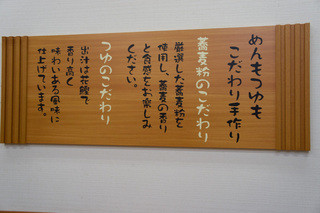 めんもつゆも
こだわり手作り
蕎麦粉のこだわり
厳選した蕎麦粉を
使用し、蕎麦の香り
と食感をお楽しみ
ください。
つゆのこだわり
出汁は花鰹で
香り高く
味わいある風味に
仕上げています。